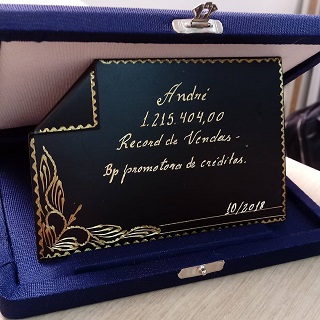 André
1.215.404,00
Record de Vendas -
Bp promotora de créditos.
10/2018